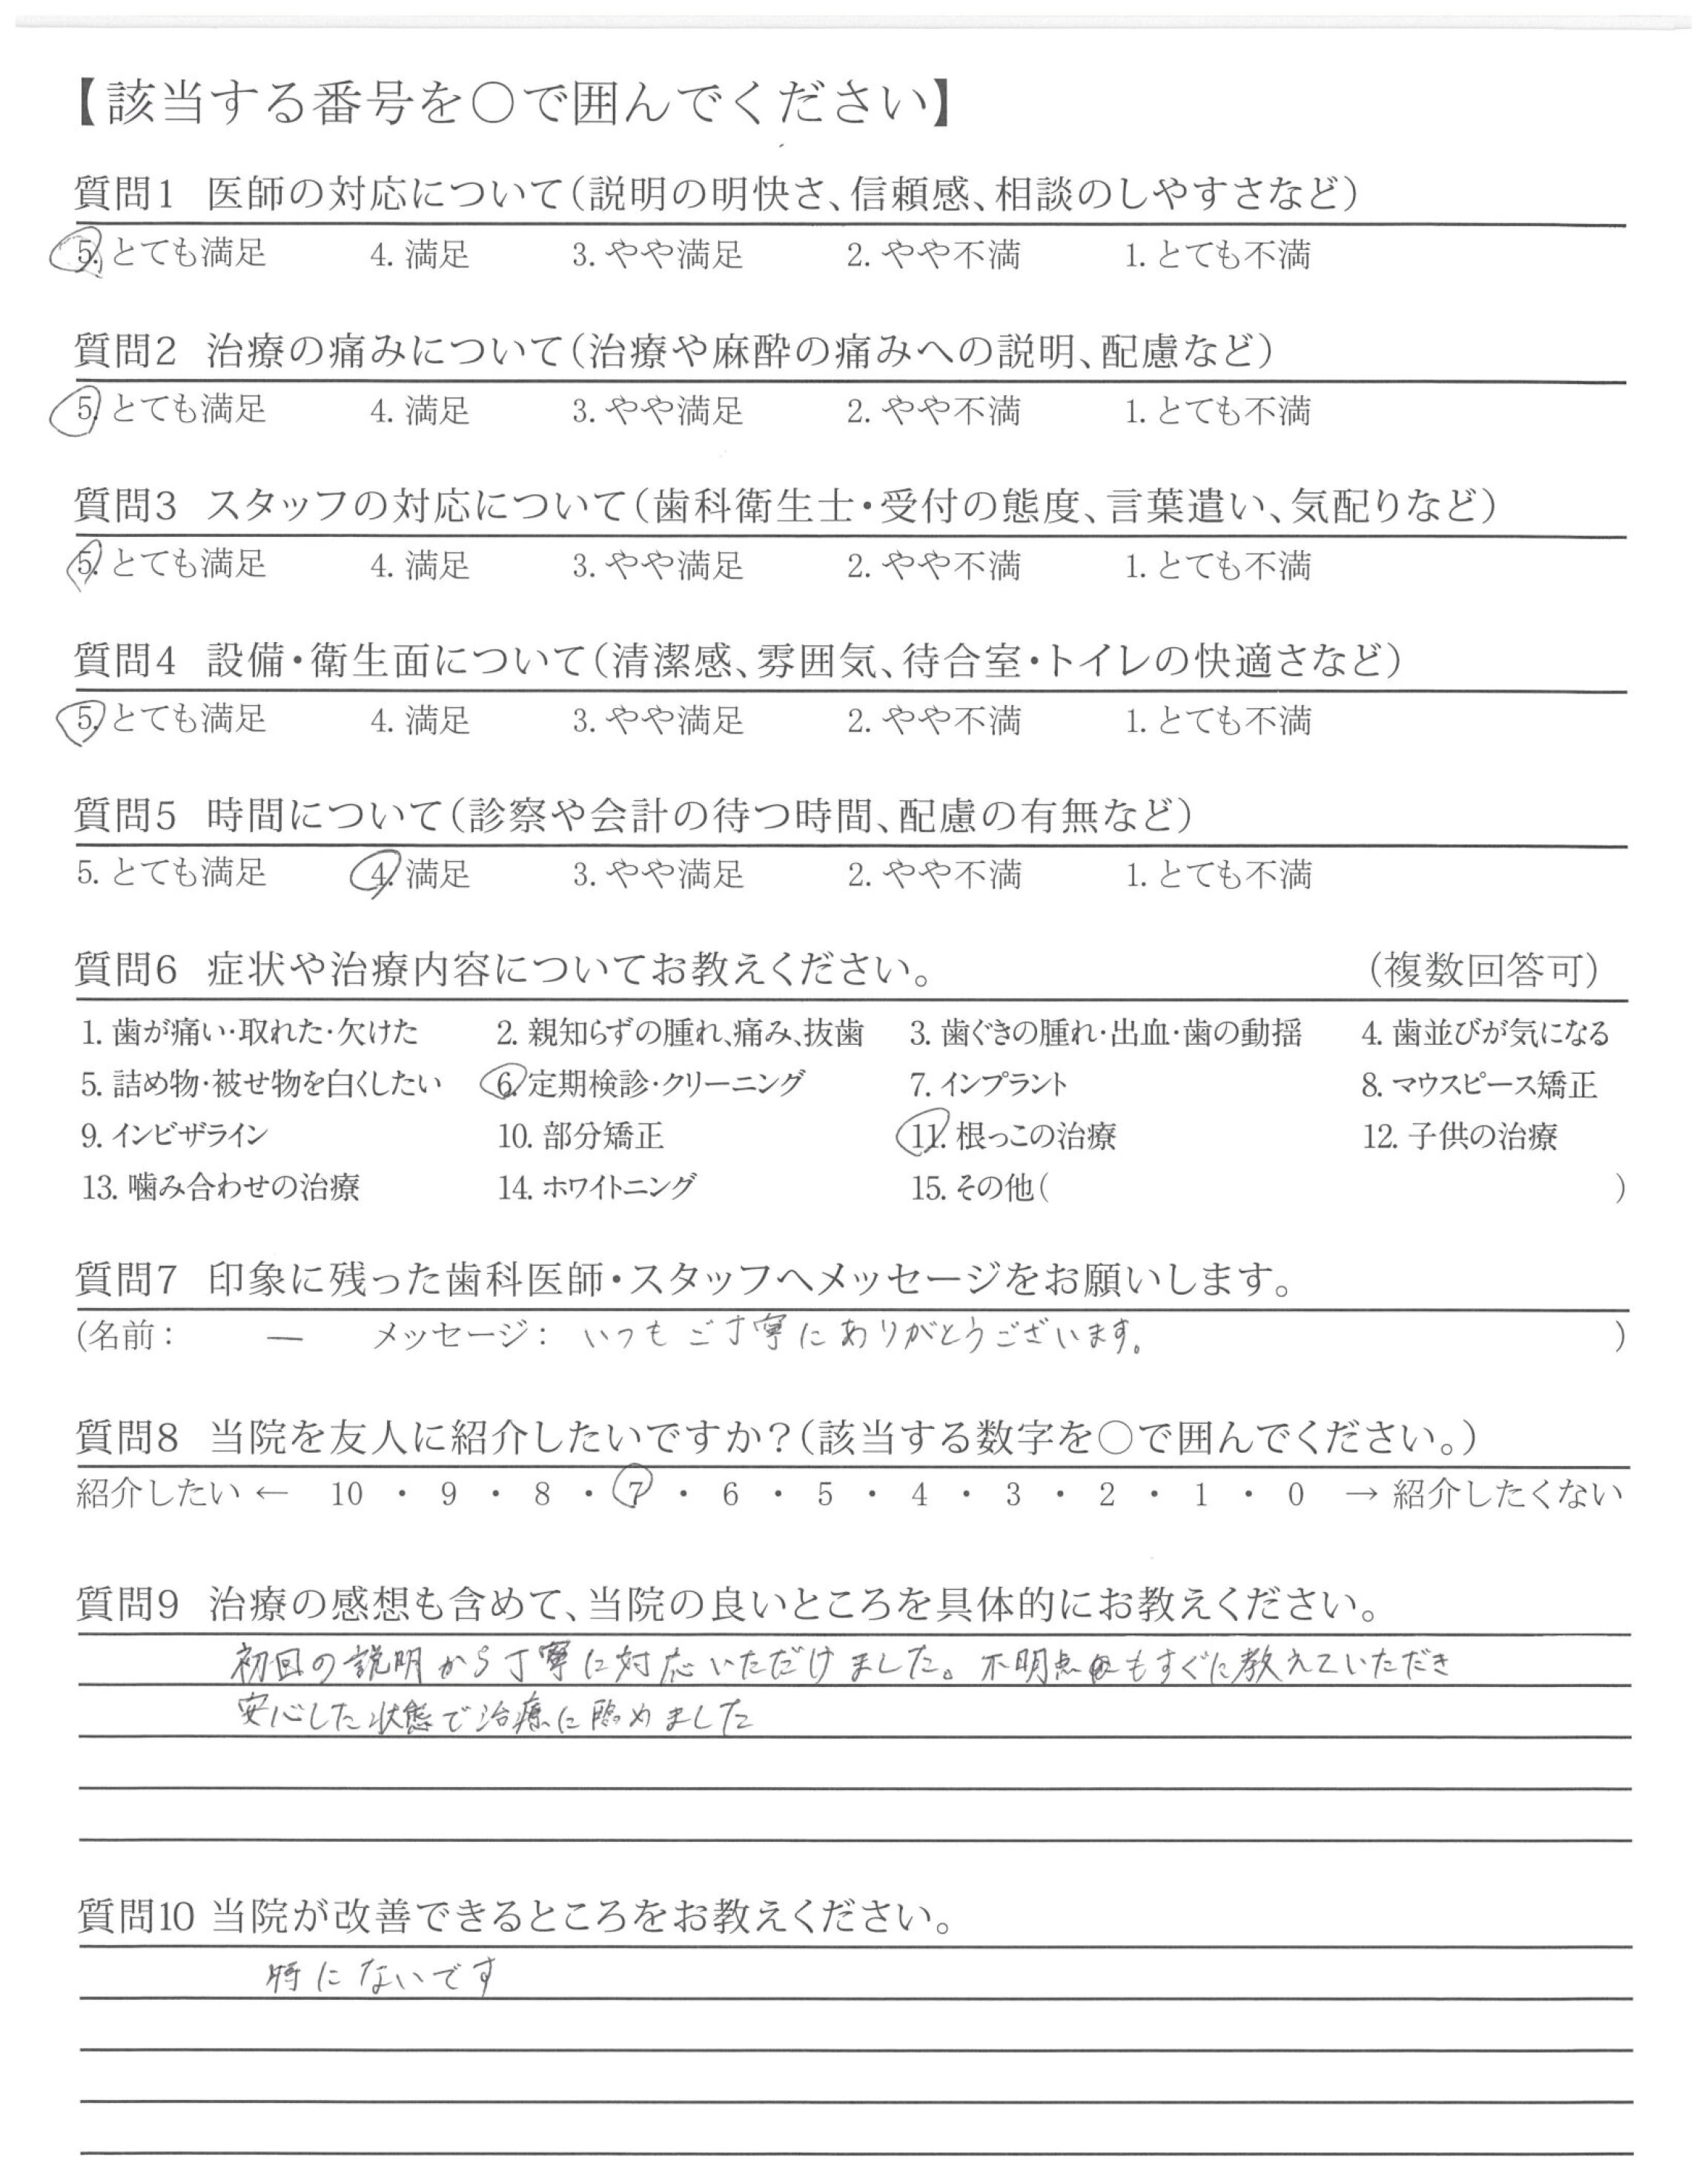 【該当する番号を○で囲んでください】
質問1 医師の対応について(説明の明快さ、信頼感、相談のしやすさなど)
5. とても満足 4. 満足 3. やや満足 2. やや不満 1. とても不満
質問2 治療の痛みについて(治療や麻酔の痛みへの説明、配慮など)
5. とても満足 4. 満足 3. やや満足 2. やや不満 1. とても不満
質問3 スタッフの対応について(歯科衛生士・受付の態度、言葉遣い、気配りなど)
5. とても満足 4. 満足 3. やや満足 2. やや不満 1. とても不満
質問4 設備・衛生面について(清潔感、雰囲気、待合室・トイレの快適さなど)
5. とても満足 4. 満足 3. やや満足 2. やや不満 1. とても不満
質問5 時間について(診察や会計の待つ時間、配慮の有無など)
5. とても満足 4. 満足 3. やや満足 2. やや不満 1. とても不満
質問6 症状や治療内容についてお教えください。 (複数回答可)
1. 歯が痛い・取れた・欠けた 2. 親知らずの腫れ、痛み、抜歯 3. 歯ぐきの腫れ・出血・歯の動揺 4. 歯並びが気になる
5. 詰め物・被せ物を白くしたい 6. 定期検診・クリーニング 7. インプラント 8. マウスピース矯正
9. インビザライン 10. 部分矯正 11. 根っこの治療 12. 子供の治療
13. 噛み合わせの治療 14. ホワイトニング 15. その他( )
質問7 印象に残った歯科医師・スタッフへメッセージをお願いします。
(名前: ー メッセージ: いつもご丁寧にありがとうございます。 )
質問8 当院を友人に紹介したいですか?(該当する数字を○で囲んでください。)
紹介したい ← 10 ・ 9 ・ 8 ・ 7 ・ 6 ・ 5 ・ 4 ・ 3 ・ 2 ・ 1 ・ 0 → 紹介したくない
質問9 治療の感想も含めて、当院の良いところを具体的にお教えください。
初回の説明から丁寧に対応いただけました。不明点もすぐに教えていただき
安心した状態で治療に臨めました
質問10 当院が改善できるところをお教えください。
特にないです